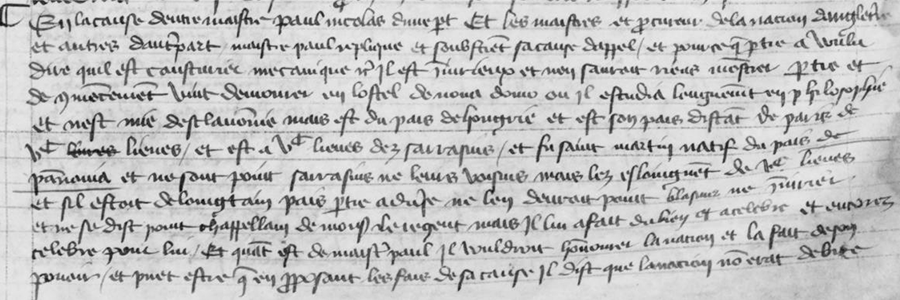 En la cause dentre maistre paul nicolas dune pt Et les maistres et pcureur de la nacion dangleterre
et autres dautre part maistre paul replique et soubstient sa cause dappel / et pour ce q ptie a voulu
dire quil est cousturier mecanique il est iniurieux et non sauroit riens monstrer ptie et
de 9mencement vint demourer en lostel de nova domo ou il estudia longuemt en philosophie
et nest mie desclavonie mais est du pais de hongrie et est son pais distat de paris de
vc lieues / et est a vc lieues dez sarrasins / et fu saint martin natif du pais de
panonia et ne sont point sarrasins ne leurs voisins mais lez esloingnet de vc lieues
et sil estoit de loingtain pais ptie adverse ne len devroit point blasmer ne iniurier
et ne se dist point chappellain de mons le regent mais il lui a fait du bien et a celebre et encores
celebre pour lui / Et quat est de maistre paul il vouldroit honnourer la nacion et la fait de son
povoir / et puet estre q en pposant les fais de sa cause il dist que la nacion